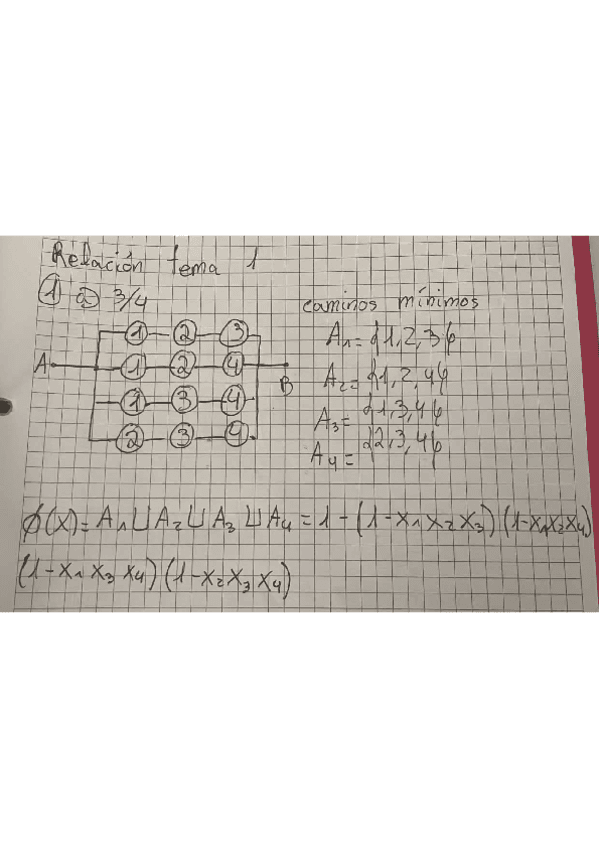 Relación tema 1
① a) 3/4
caminos mínimos
1 2 3
A₁= {1,2,3}
A 1 2 4 B
A₂= {1,2,4}
1 3 4
A₃= {1,3,4}
2 3 4
A₄= {2,3,4}
ϕ(x)= A₁ ⊔ A₂ ⊔ A₃ ⊔ A₄ = 1-(1-x₁x₂x₃)(1-x₁x₂x₄)
(1-x₁x₃x₄)(1-x₂x₃x₄)